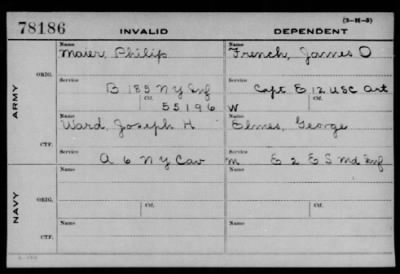 (3-H-5)
78186 INVALID DEPENDENT
Name Name
Maier, Philip French, James O
ORIG.
Service Service
B 185 N Y Inf Capt E 12 USC Art
Ctf. Ctf.
55196 W
ARMY
Name Name
Ward, Joseph H Elmes, George
CTF.
Service Service
A 6 N Y Cav M E 2 E S Md Inf
Name Name
ORIG.
Ctf. Ctf.
NAVY
Name Name
CTF.